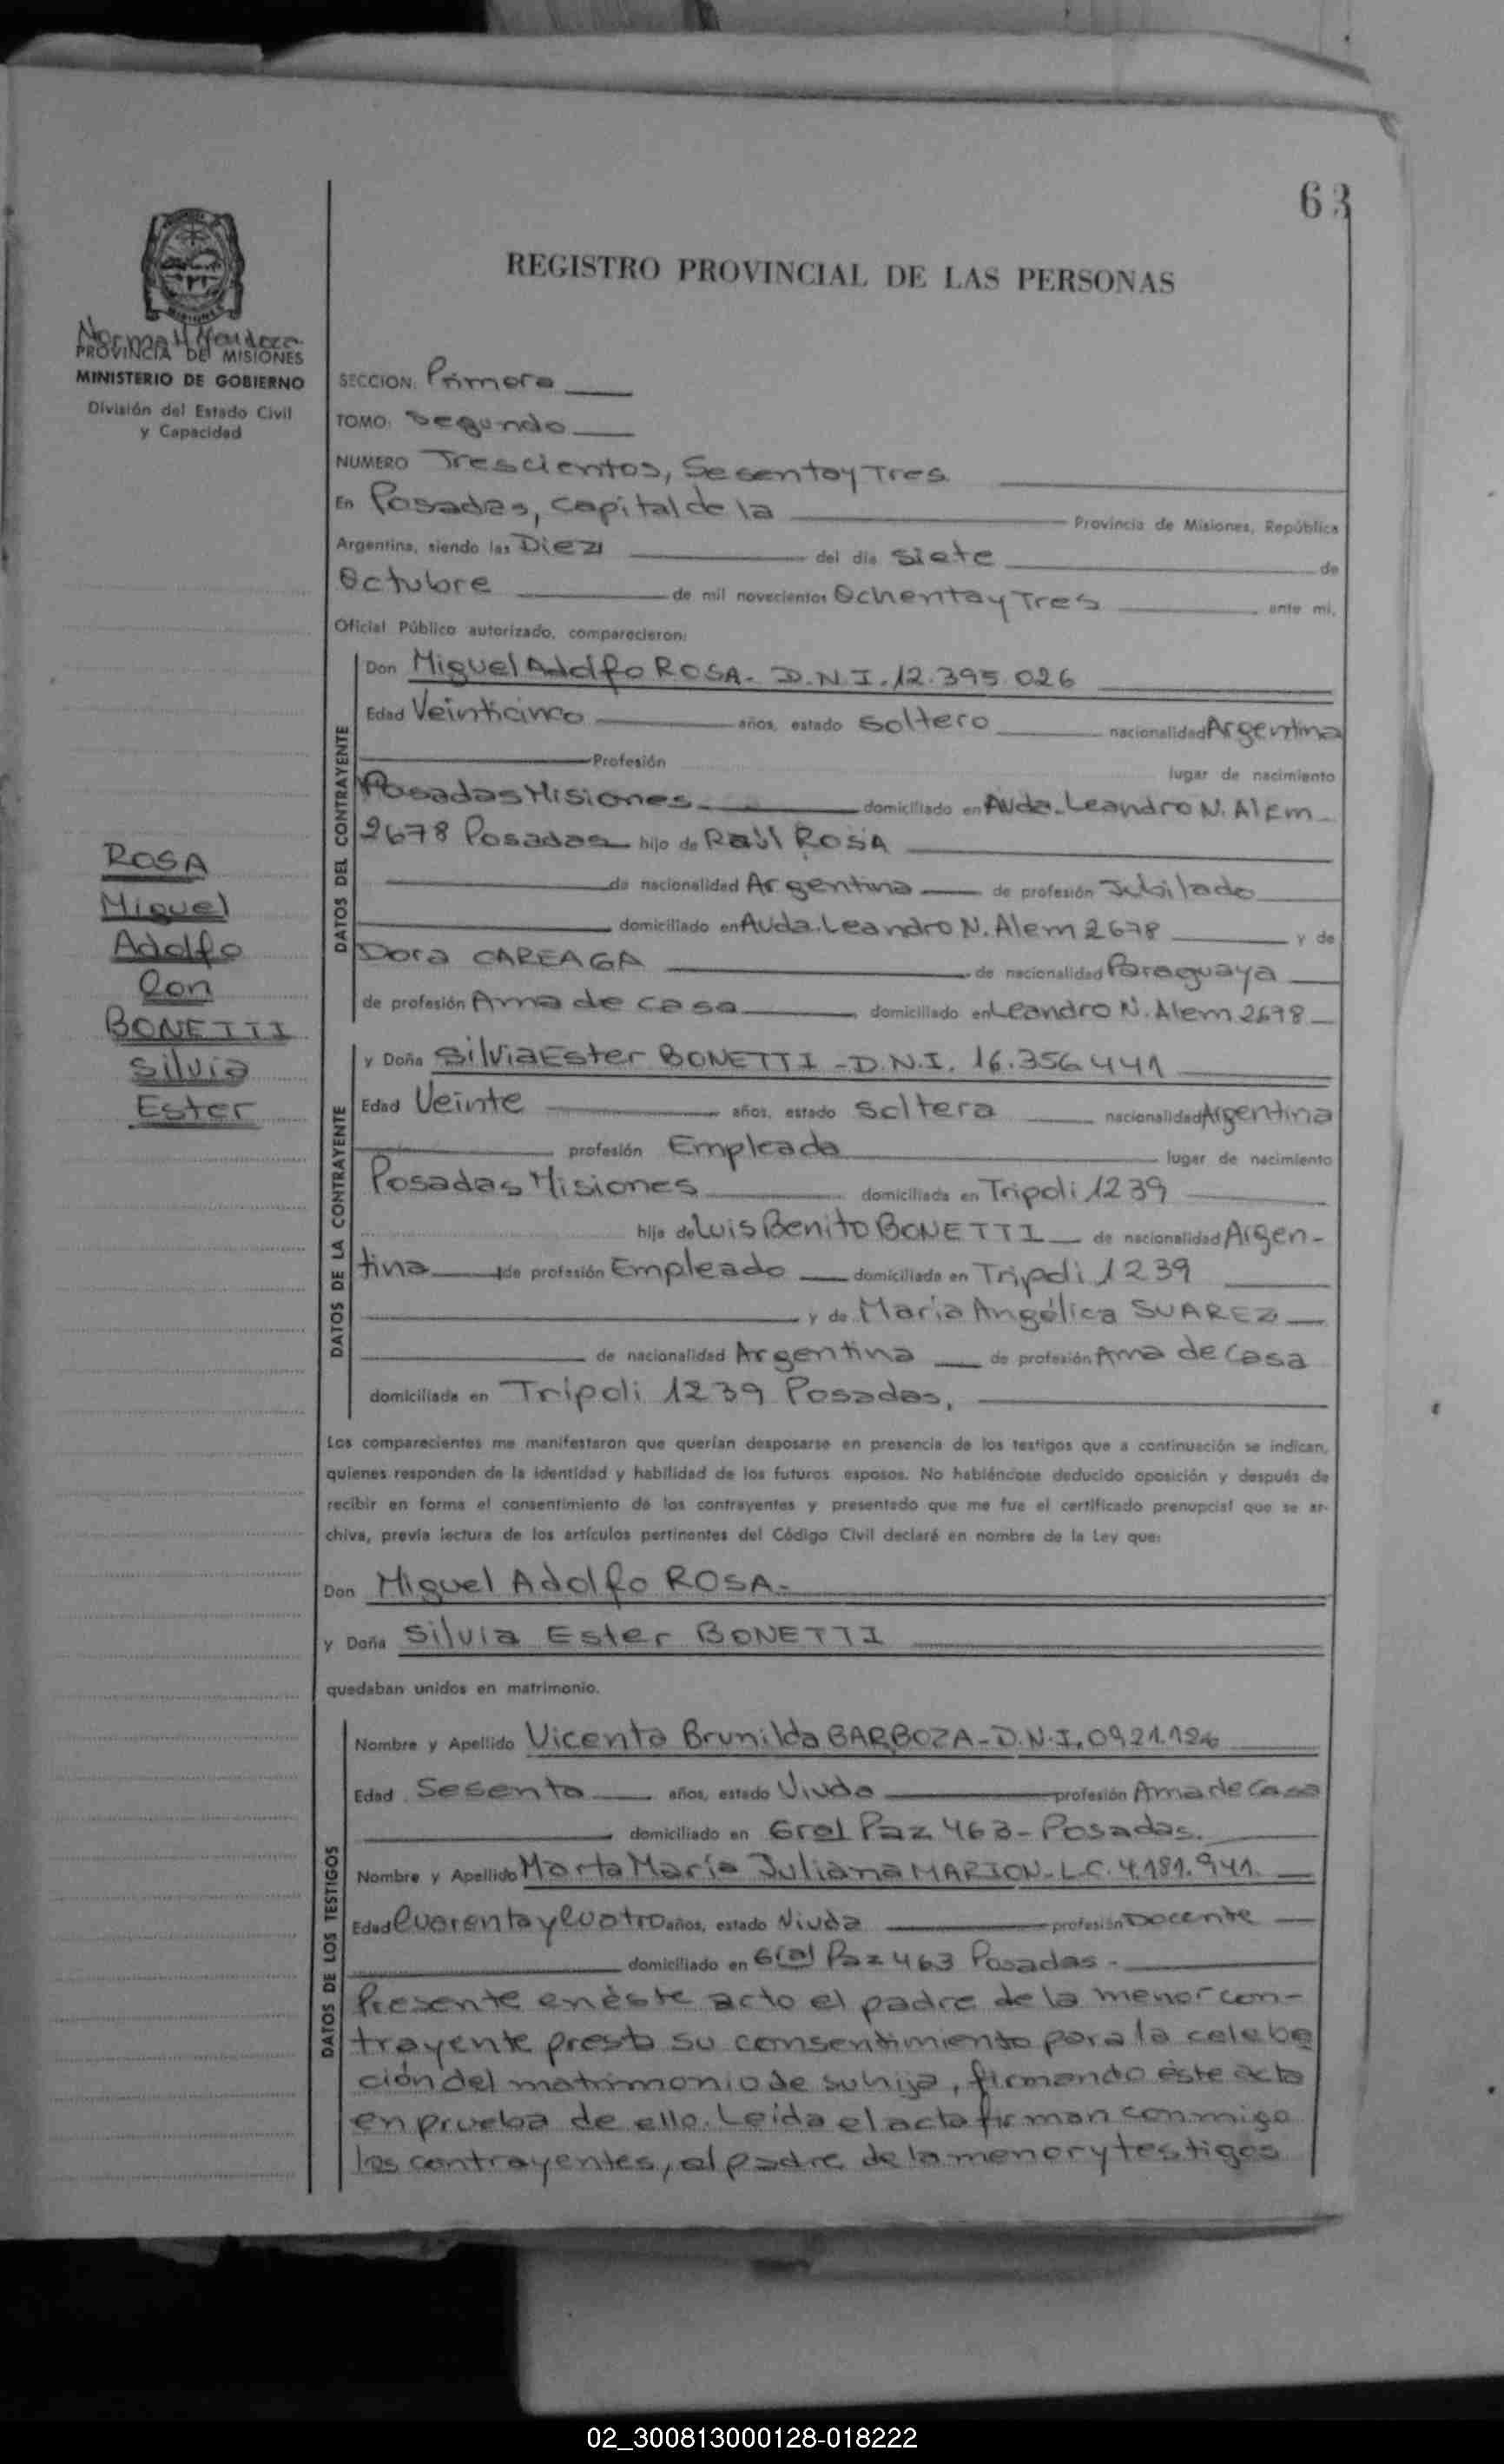 63
REGISTRO PROVINCIAL DE LAS PERSONAS
MISIONES
Norma H
PROVINCIA DE MISIONES
MINISTERIO DE GOBIERNO
División del Estado Civil
y Capacidad
SECCION: Primera
TOMO: Segundo
NUMERO Trescientos, Sesentay Tres
En Posadas, capital de la Provincia de Misiones, República
Argentina, siendo las Diez del día siete de
Octubre de mil novecientos Ochentay Tres ante mi,
Oficial Público autorizado, comparecieron:
DATOS DEL CONTRAYENTE
Don Miguel Adolfo ROSA - D.N.I. 12.395.026
Edad Veinticinco años, estado soltero nacionalidad Argentina
Profesión lugar de nacimiento
Posadas Misiones domiciliado en Avda. Leandro N. Alem
2678 Posadas hijo de Raúl ROSA
de nacionalidad Argentina de profesión Jubilado
domiciliado en Avda. Leandro N. Alem 2678 y de
Dora CAREAGA de nacionalidad Paraguaya
de profesión Ama de casa domiciliado en Leandro N. Alem 2698
ROSA
Miguel
Adolfo
Con
BONETTI
Silvia
Ester
DATOS DE LA CONTRAYENTE
y Doña Silvia Ester BONETTI - D.N.I. 16.356.441
Edad Veinte años, estado soltera nacionalidad Argentina
profesión Empleada lugar de nacimiento
Posadas Misiones domiciliada en Tripoli 1239
hija de Luis Benito BONETTI de nacionalidad Argen-
tina de profesión Empleado domiciliado en Tripoli 1239
y de Maria Angélica SUAREZ
de nacionalidad Argentina de profesión Ama de Casa
domiciliada en Tripoli 1239 Posadas,
Los comparecientes me manifestaron que querían desposarse en presencia de los testigos que a continuación se indican,
quienes responden de la identidad y habilidad de los futuros esposos. No habiéndose deducido oposición y después de
recibir en forma el consentimiento de los contrayentes y presentado que me fue el certificado prenupcial que se ar-
chiva, previa lectura de los artículos pertinentes del Código Civil declaré en nombre de la Ley que:
Don Miguel Adolfo ROSA.-
y Doña Silvia Ester BONETTI
quedaban unidos en matrimonio.
DATOS DE LOS TESTIGOS
Nombre y Apellido Vicenta Brunilda BARBOZA - D.N.I.
Edad Sesenta años, estado Viuda profesión Ama de Casa
domiciliado en Gral Paz 463 - Posadas.
Nombre y Apellido Marta María Juliana MARION - L.C. 4.181.941.
Edad Cuarenta y Cuatro años, estado Viuda profesión Docente
domiciliado en Gral Paz 463 Posadas -
Presente en éste acto el padre de la menor con-
trayente presta su consentimiento para la celebra
ción del matrimonio de su hija, firmando éste acta
en prueba de ello. Leida el acta firman conmigo
los contrayentes, el padre de la menor y testigos
02_300813000128-018222